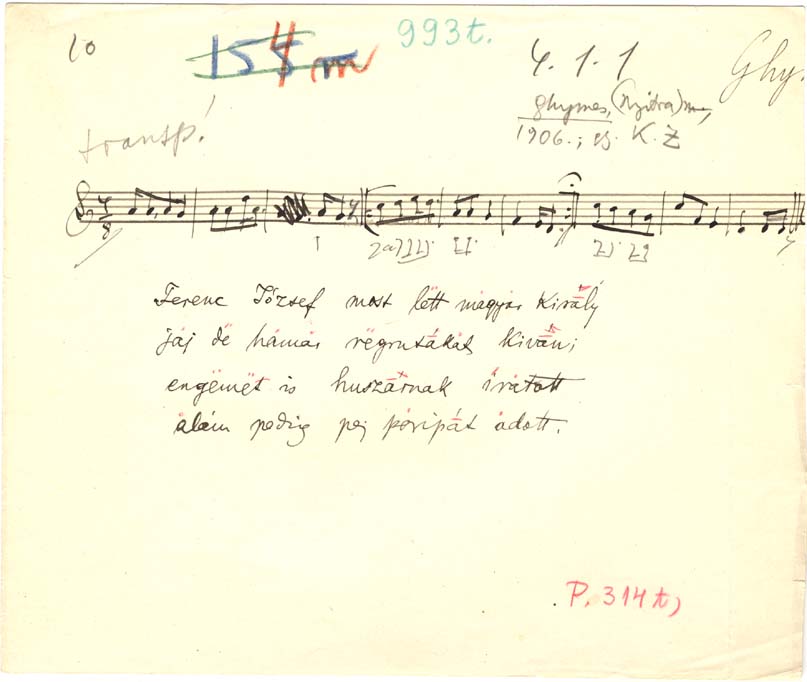 10
993t.
4. 1. 1
Ghy.
ghymes, (Nyitra) m,
1906.; gy. K. Z
transp!
Ferenc József most lëtt magyar király
jaj dë hamar rëgrutákat kíván;
engëmët is huszárnak íratott
alám pedig pej paripát adott.
P. 314 t,